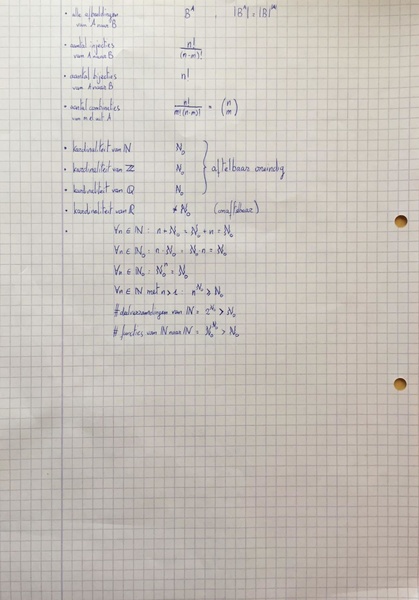 • alle afbeeldingen van A naar B    B^A    |B^A| = |B|^|A|
• aantal injecties van A naar B    n!/(n-m)!
• aantal bijecties van A naar B    n!
• aantal combinaties van m el. uit A    n!/(m!(n-m)!) = (n m)
• kardinaliteit van ℕ    ℵ₀
• kardinaliteit van ℤ    ℵ₀    } aftelbaar oneindig
• kardinaliteit van ℚ    ℵ₀
• kardinaliteit van ℝ    ≠ ℵ₀    (onaftelbaar)
• ∀n ∈ ℕ : n + ℵ₀ = ℵ₀ + n = ℵ₀
∀n ∈ ℕ₀ : n · ℵ₀ = ℵ₀ · n = ℵ₀
∀n ∈ ℕ₀ : ℵ₀^n = ℵ₀
∀n ∈ ℕ met n > 1 : n^ℵ₀ > ℵ₀
# deelverzamelingen van ℕ = 2^ℵ₀ > ℵ₀
# functies van ℕ naar ℕ = ℵ₀^ℵ₀ > ℵ₀